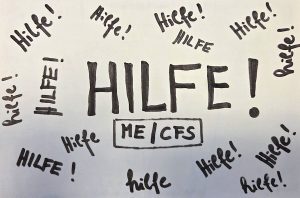 Hilfe!
Hilfe!
Hilfe!
Hilfe!
HILFE
HILFE!
hilfe!
HILFE!
hilfe!
HILFE!
ME/CFS
Hilfe
Hilfe!
HILFE!
Hilfe!
hilfe
hilfe!